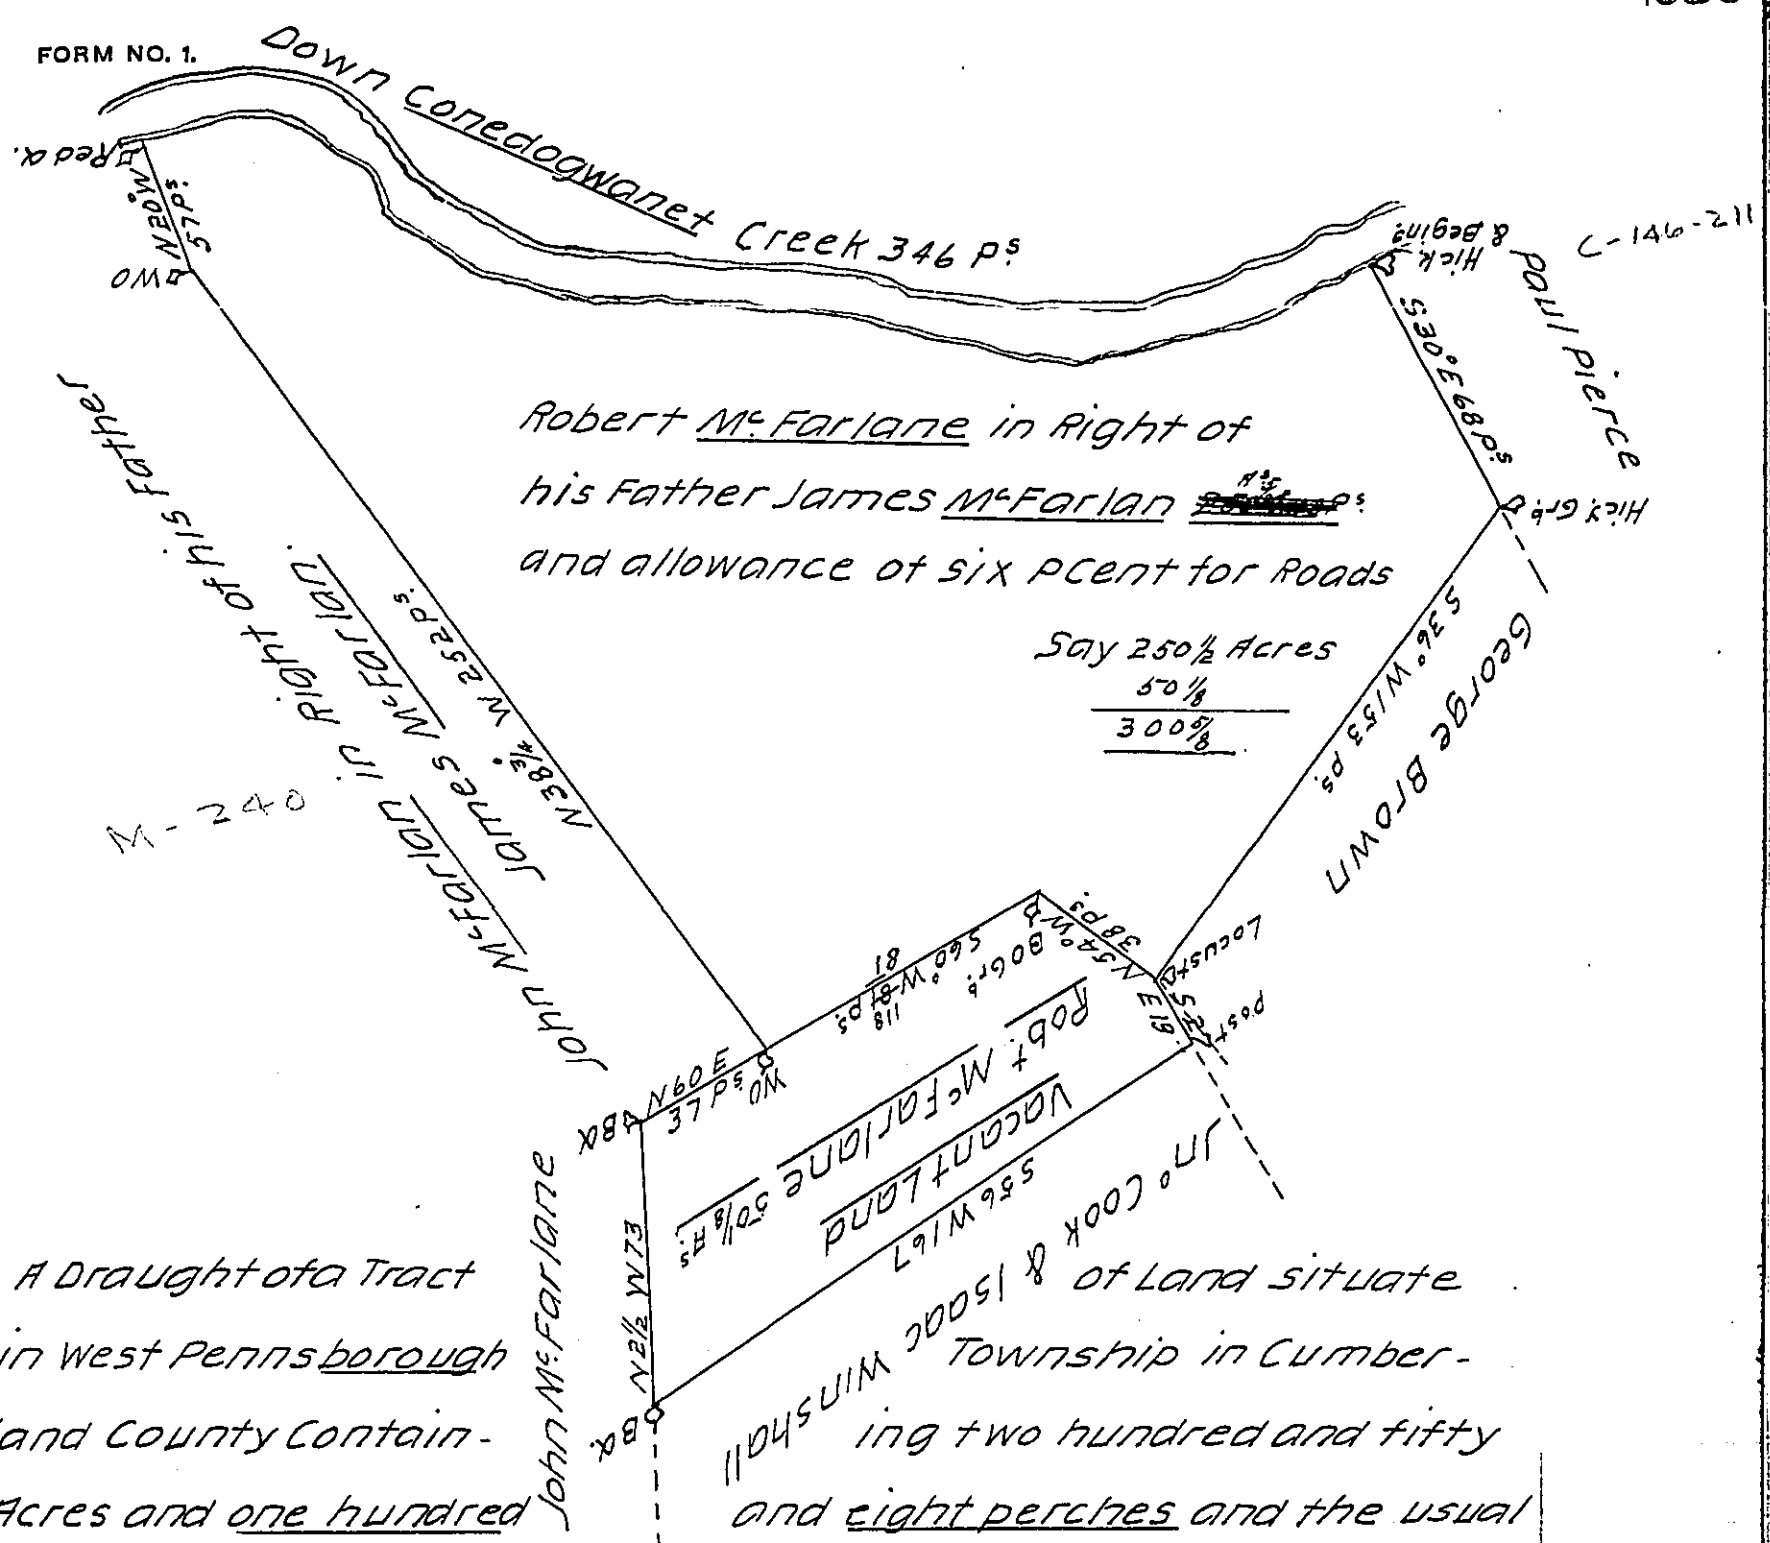 FORM NO. 1.
Down Conedogwanet Creek 346 Ps.
Red O.
N20°W
57 Ps.
WO
Hick.
& Begin?
Paul Pierce
C-146-211
S30°E 68 Ps.
Hick. Grb.
Robert McFarlane in Right of
his Father James McFarlan
As.
Ps.
and allowance of six PCent for Roads
Say 250 1/2 Acres
50 1/8
300 5/8
S36°W 153 Ps.
George Brown
John McFarlan in Right of his Father
James McFarlan.
N38 3/4° W 252 Ps.
M-240
N54°W
38 Ps.
BO Grb.
S60°W 81 Ps.
118
81
Locust
S27
E19
Post
N60E
37 Ps
WO
BO
Robt. McFarlane 50 1/8 As.
Vacant Land
S56W167
Jno Cook & Isaac Winshall
N2 1/2 W73
BO.
John McFarlane
A Draught of a Tract of Land situate
in West Pennsborough Township in Cumber-
land County Contain- ing two hundred and fifty
Acres and one hundred and eight perches and the usual